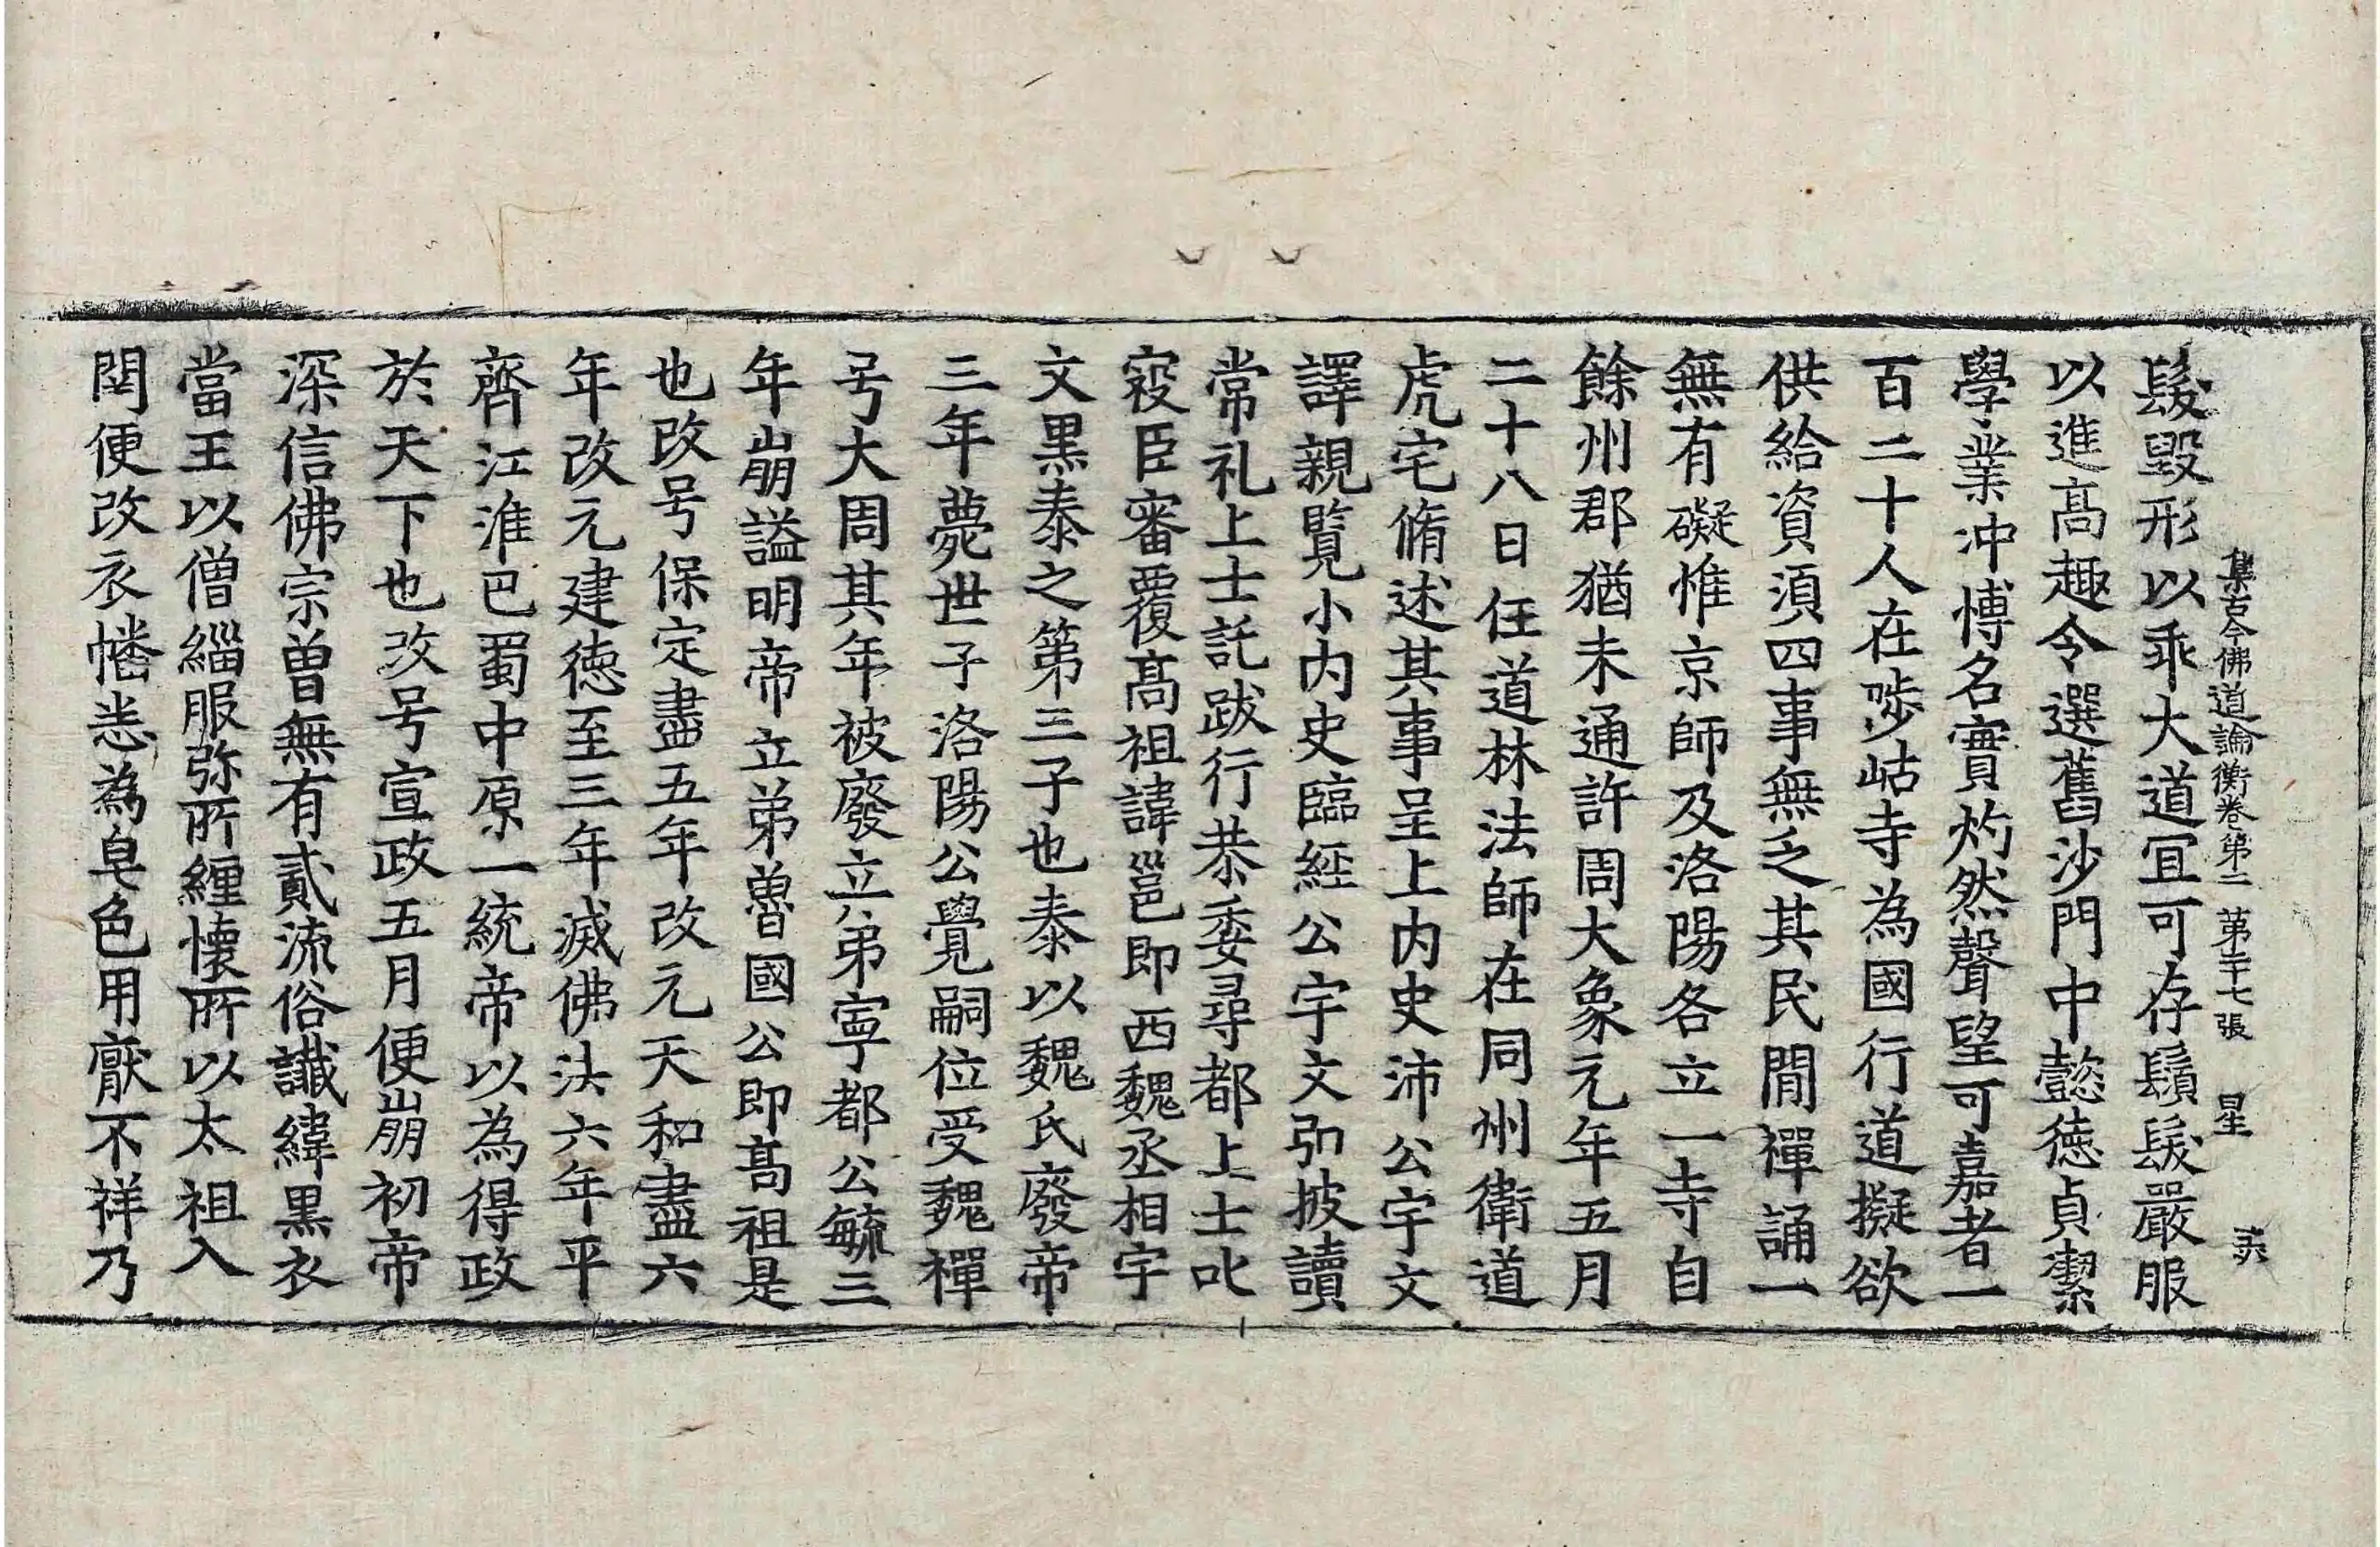 集古今佛道論衡卷第二 第三十七張 星
髮毀形以乖大道冝可存鬚髮嚴服
以進高趣令選舊沙門中懿徳貞潔
學業沖博名實灼然聲望可嘉者一
百二十人在陟岵寺為國行道擬欲
供給資湏四事無乏其民閒禪誦一
無有礙惟京師及洛陽各立一寺自
餘州郡猶未通許周大象元年五月
二十八日任道林法師在同州衛道
虎宅脩述其事呈上内史沛公宇文
譯親覧小内史臨經公宇文弘披讀
常礼上士託跋行恭委尋都上士叱
寇臣審覆髙祖諱邕即西魏丞相宇
文黒泰之第三子也泰以魏氏廢帝
三年薨世子洛陽公覺嗣位受魏禪
号大周其年被廢立弟寧都公毓三
年崩謚明帝立弟魯國公即髙祖是
也改号保定盡五年改元天和盡六
年改元建徳至三年滅佛法六年平
齊江淮巴蜀中原一統帝以為得政
於天下也改号宣政五月便崩初帝
深信佛宗曽無有貳流俗讖緯黒衣
當王以僧緇服弥所纏懷所以太祖入
関便改衣幡悉為皂色用厭不祥乃